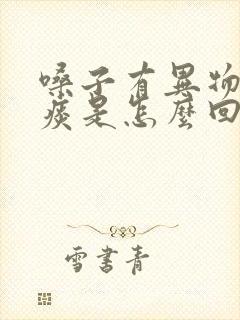 嗓子有異物
痰是怎麼回
雪書青